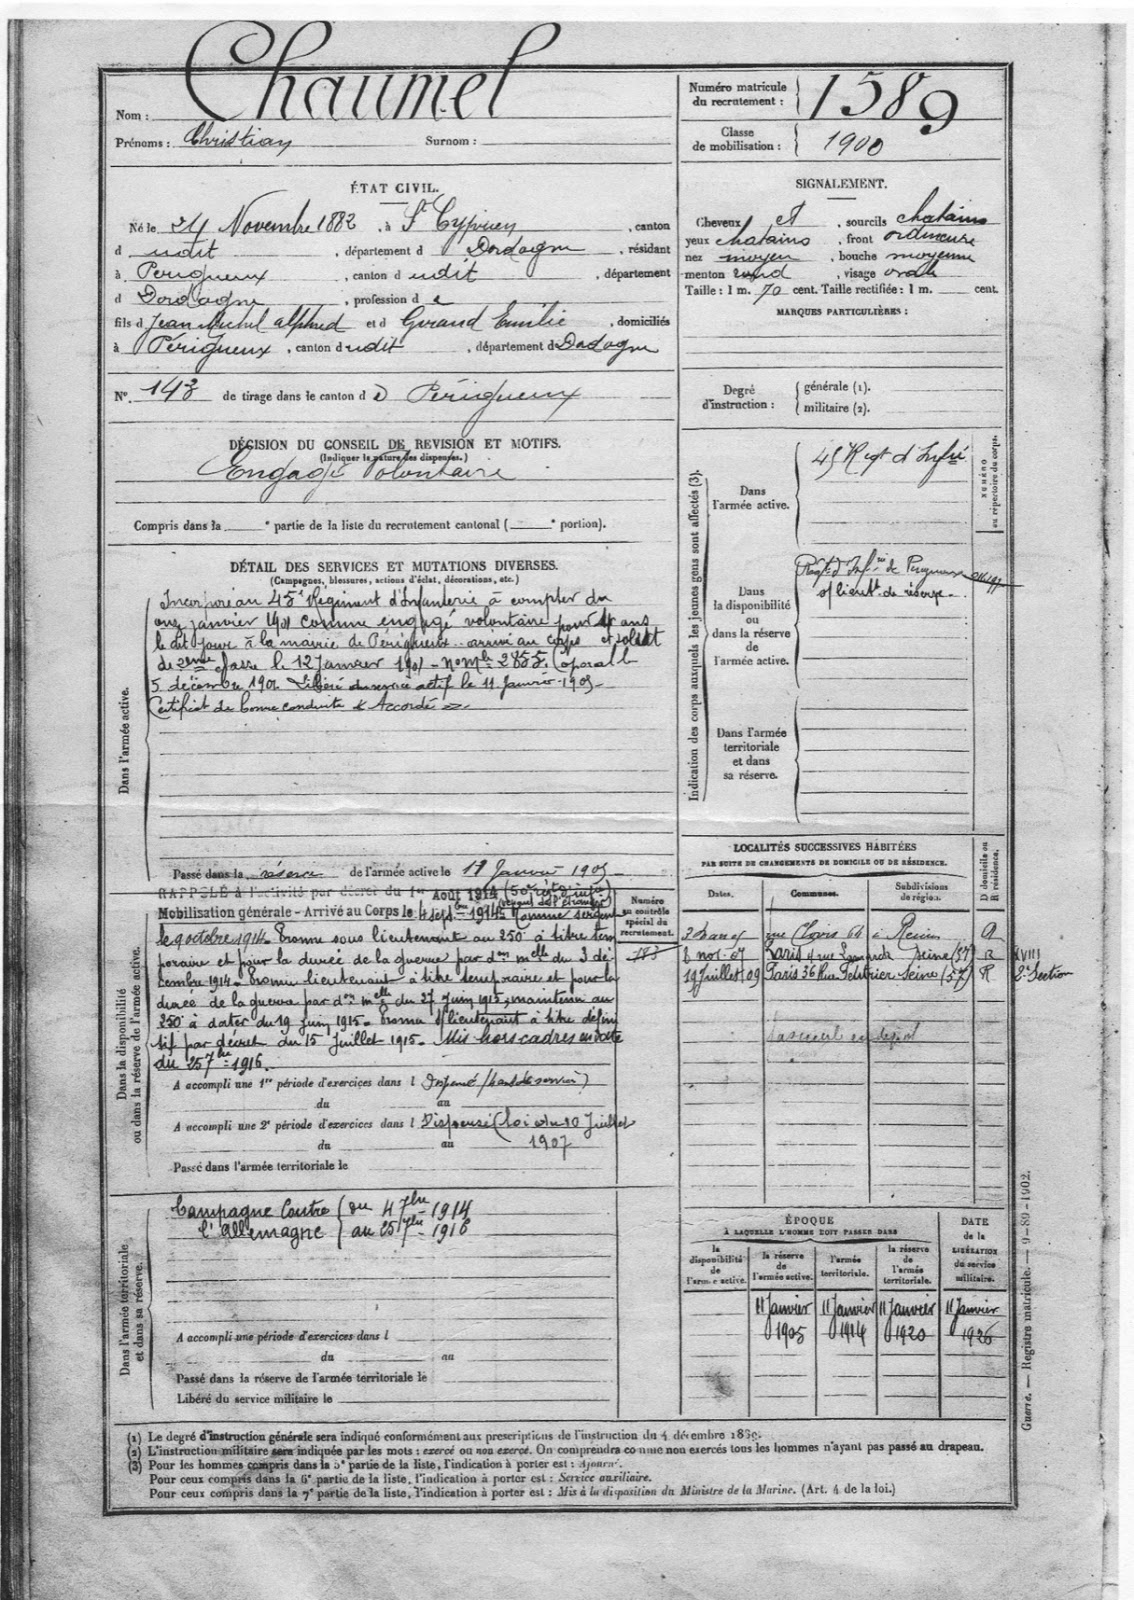 Nom : Chaumel
Prénoms : Christian Surnom :
Numéro matricule du recrutement : 1589
Classe de mobilisation : 1900
ÉTAT CIVIL.
Né le 24 Novembre 1882, à St Cyprien, canton
d udit, département d Dordogne, résidant
à Périgueux, canton d udit, département
d Dordogne, profession d e
fils d Jean Michel Alphred et d Girand Emilie, domiciliés
à Périgueux, canton d udit, département d Dordogne
No. 143 de tirage dans le canton d e Périgueux
SIGNALEMENT.
Cheveux et, sourcils chatains
yeux chatains, front ordinaire
nez moyen, bouche moyenne
menton rond, visage ovale
Taille : 1 m. 70 cent. Taille rectifiée : 1 m. cent.
MARQUES PARTICULIÈRES :
Degré d'instruction :
générale (1).
militaire (2).
DÉCISION DU CONSEIL DE REVISION ET MOTIFS.
(Indiquer la nature des dispenses.)
Engagé Volontaire
Compris dans la e partie de la liste du recrutement cantonal ( e portion).
DÉTAIL DES SERVICES ET MUTATIONS DIVERSES.
(Campagnes, blessures, actions d'éclat, décorations, etc.)
Dans l'armée active.
Incorporé au 45e Régiment d'Infanterie à compter du
onze janvier 1901 comme engagé volontaire pour 4 ans
le dit jour à la mairie de Périgueux arrivé au corps et soldat
de 2ème classe le 12 Janvier 1901 - No Mle 2855. Caporal le
5 décembre 1901 Libéré du service actif le 11 Janvier 1905
Certificat de bonne conduite "Accordé"
Passé dans la réserve de l'armée active le 11 Janvier 1905
Dans la disponibilité
ou dans la réserve de l'armée active.
RAPPELÉ à l'activité par décret du 1er Août 1914 (50e rég d'inf)
Mobilisation générale - Arrivé au Corps le 4 sept 1914 (venant de l'étranger) Comme sergent
le 9 octobre 1914. Promu sous lieutenant au 250e à titre tem
poraire et pour la durée de la guerre par don mlle du 3 dé
cembre 1914. Promu lieutenant à titre temporaire et pour la
durée de la guerre par don mlle du 27 Juin 1915, maintenu au
250e à dater du 19 Juin 1915. Promu s/lieutenant à titre défini
tif par décret du 15 Juillet 1915. Mis hors cadres en date
du 25 7bre 1916.
A accompli une 1re période d'exercices dans l Dispensé
du au
A accompli une 2e période d'exercices dans l Dispensé (loi du 10 Juillet
du au 1907
Passé dans l'armée territoriale le
Numéro au contrôle spécial du recrutement.
183
Dans l'armée territoriale
et dans sa réserve.
Campagne Contre ( du 4 7bre 1914
l'Allemagne ) au 25 7bre 1916
A accompli une période d'exercices dans l
du au
Passé dans la réserve de l'armée territoriale le
Libéré du service militaire le
Indication des corps auxquels les jeunes gens sont affectés (3).
Dans l'armée active.
45 Regt d'Infie
NUMÉRO au répertoire du corps.
Dans la disponibilité ou dans la réserve de l'armée active.
Regt d'Infrie de Périgueux
s/lieutt de réserve
Dans l'armée territoriale et dans sa réserve.
LOCALITÉS SUCCESSIVES HABITÉES
PAR SUITE DE CHANGEMENTS DE DOMICILE OU DE RÉSIDENCE.
Dates. Communes. Subdivisions de région. D domicile ou R résidence.
rue Clovis 64 à Reims
8 nov. 07 Paris 4 rue Seine (57) R
19 Juillet 09 Paris 36 Rue Seine (57) R
XVIII
2e Section
ÉPOQUE
À LAQUELLE L'HOMME DOIT PASSER DANS
DATE de la LIBÉRATION du service militaire.
la disponibilité de l'armée active.
la réserve de l'armée active.
l'armée territoriale.
la réserve de l'armée territoriale.
11 Janvier 11 Janvier 11 Janvier 11 Janvier
1905 1914 1920 1926
Guerre. — Registre matricule. — 9-89-1902.
(1) Le degré d'instruction générale sera indiqué conformément aux prescriptions de l'instruction du 4 décembre 1889.
(2) L'instruction militaire sera indiquée par les mots : exercé ou non exercé. On comprendra comme non exercés tous les hommes n'ayant pas passé au drapeau.
(3) Pour les hommes compris dans la 5e partie de la liste, l'indication à porter est : Ajourné.
Pour ceux compris dans la 6e partie de la liste, l'indication à porter est : Service auxiliaire.
Pour ceux compris dans la 7e partie de la liste, l'indication à porter est : Mis à la disposition du Ministre de la Marine. (Art. 4 de la loi.)